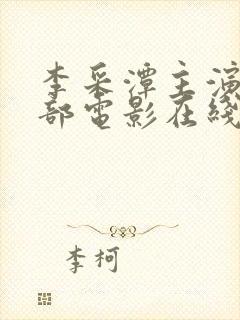 李采潭主演
部電影在綫
李柯